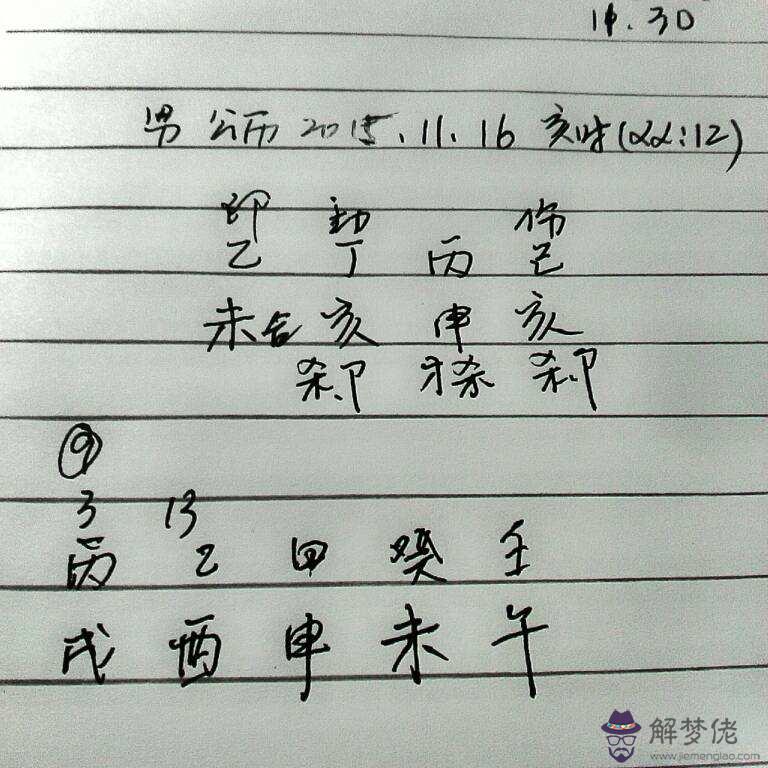 11.30
男 公历 2015.11.16 亥时(22:12)
印 劫 伤
乙 丁 丙 己
未合亥 申 亥
杀卩 才杀 杀卩
9
3 13
丙 乙 甲 癸 壬
戌 酉 申 未 午
解梦佬
www.jiemenglao.com